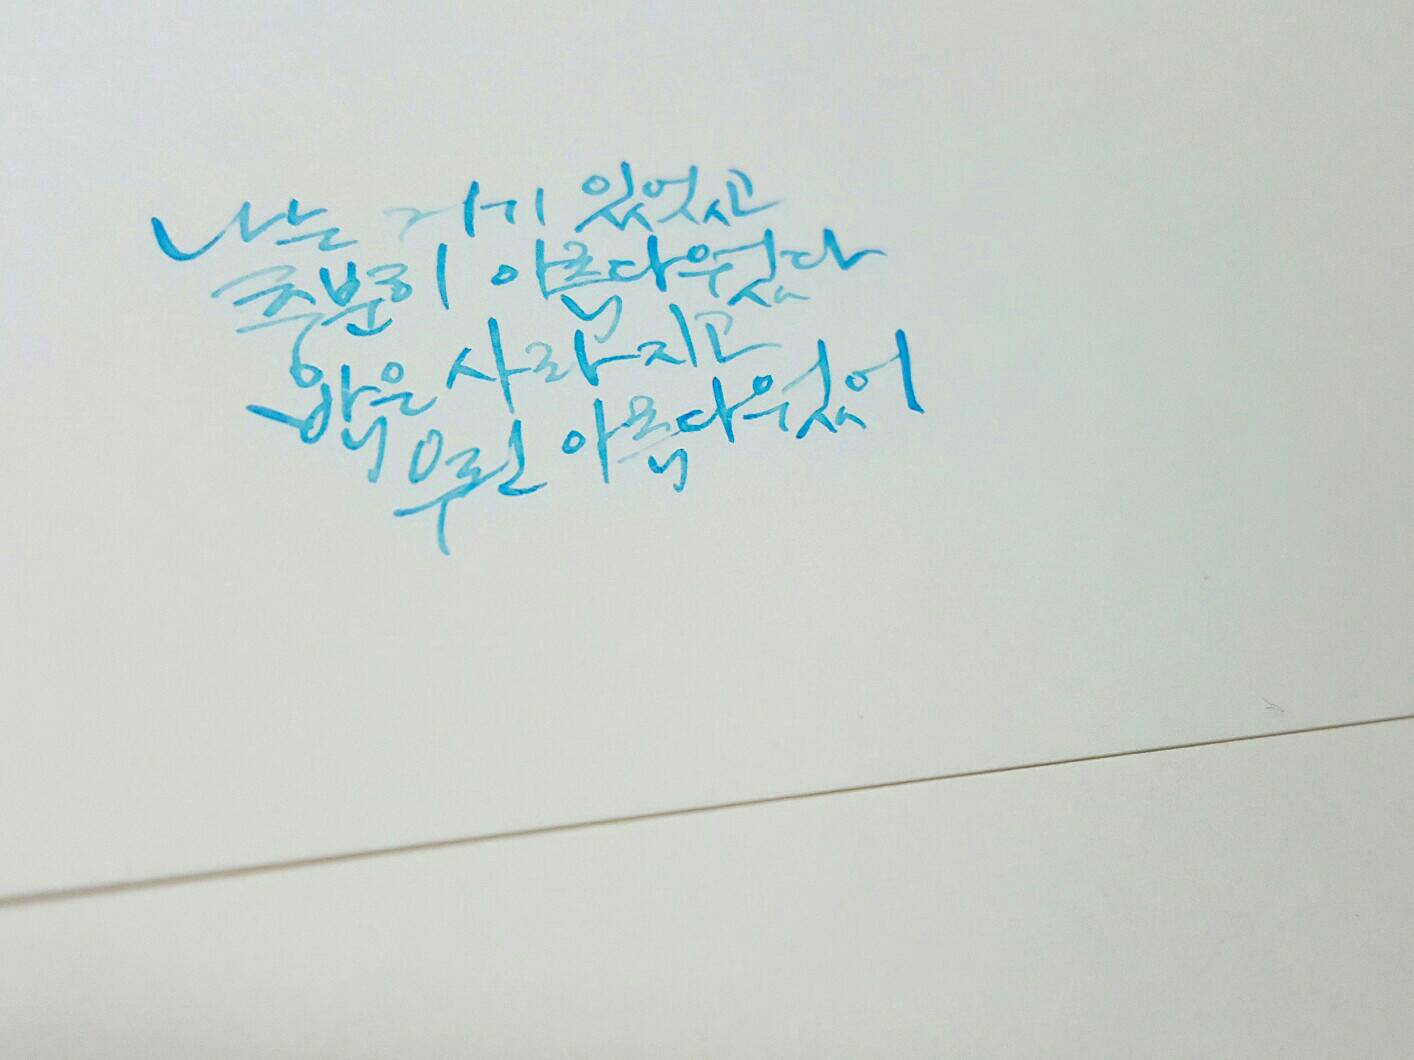 나는 거기 있었고
충분히 아름다웠다
밤은 사라지고
우린 아름다웠어